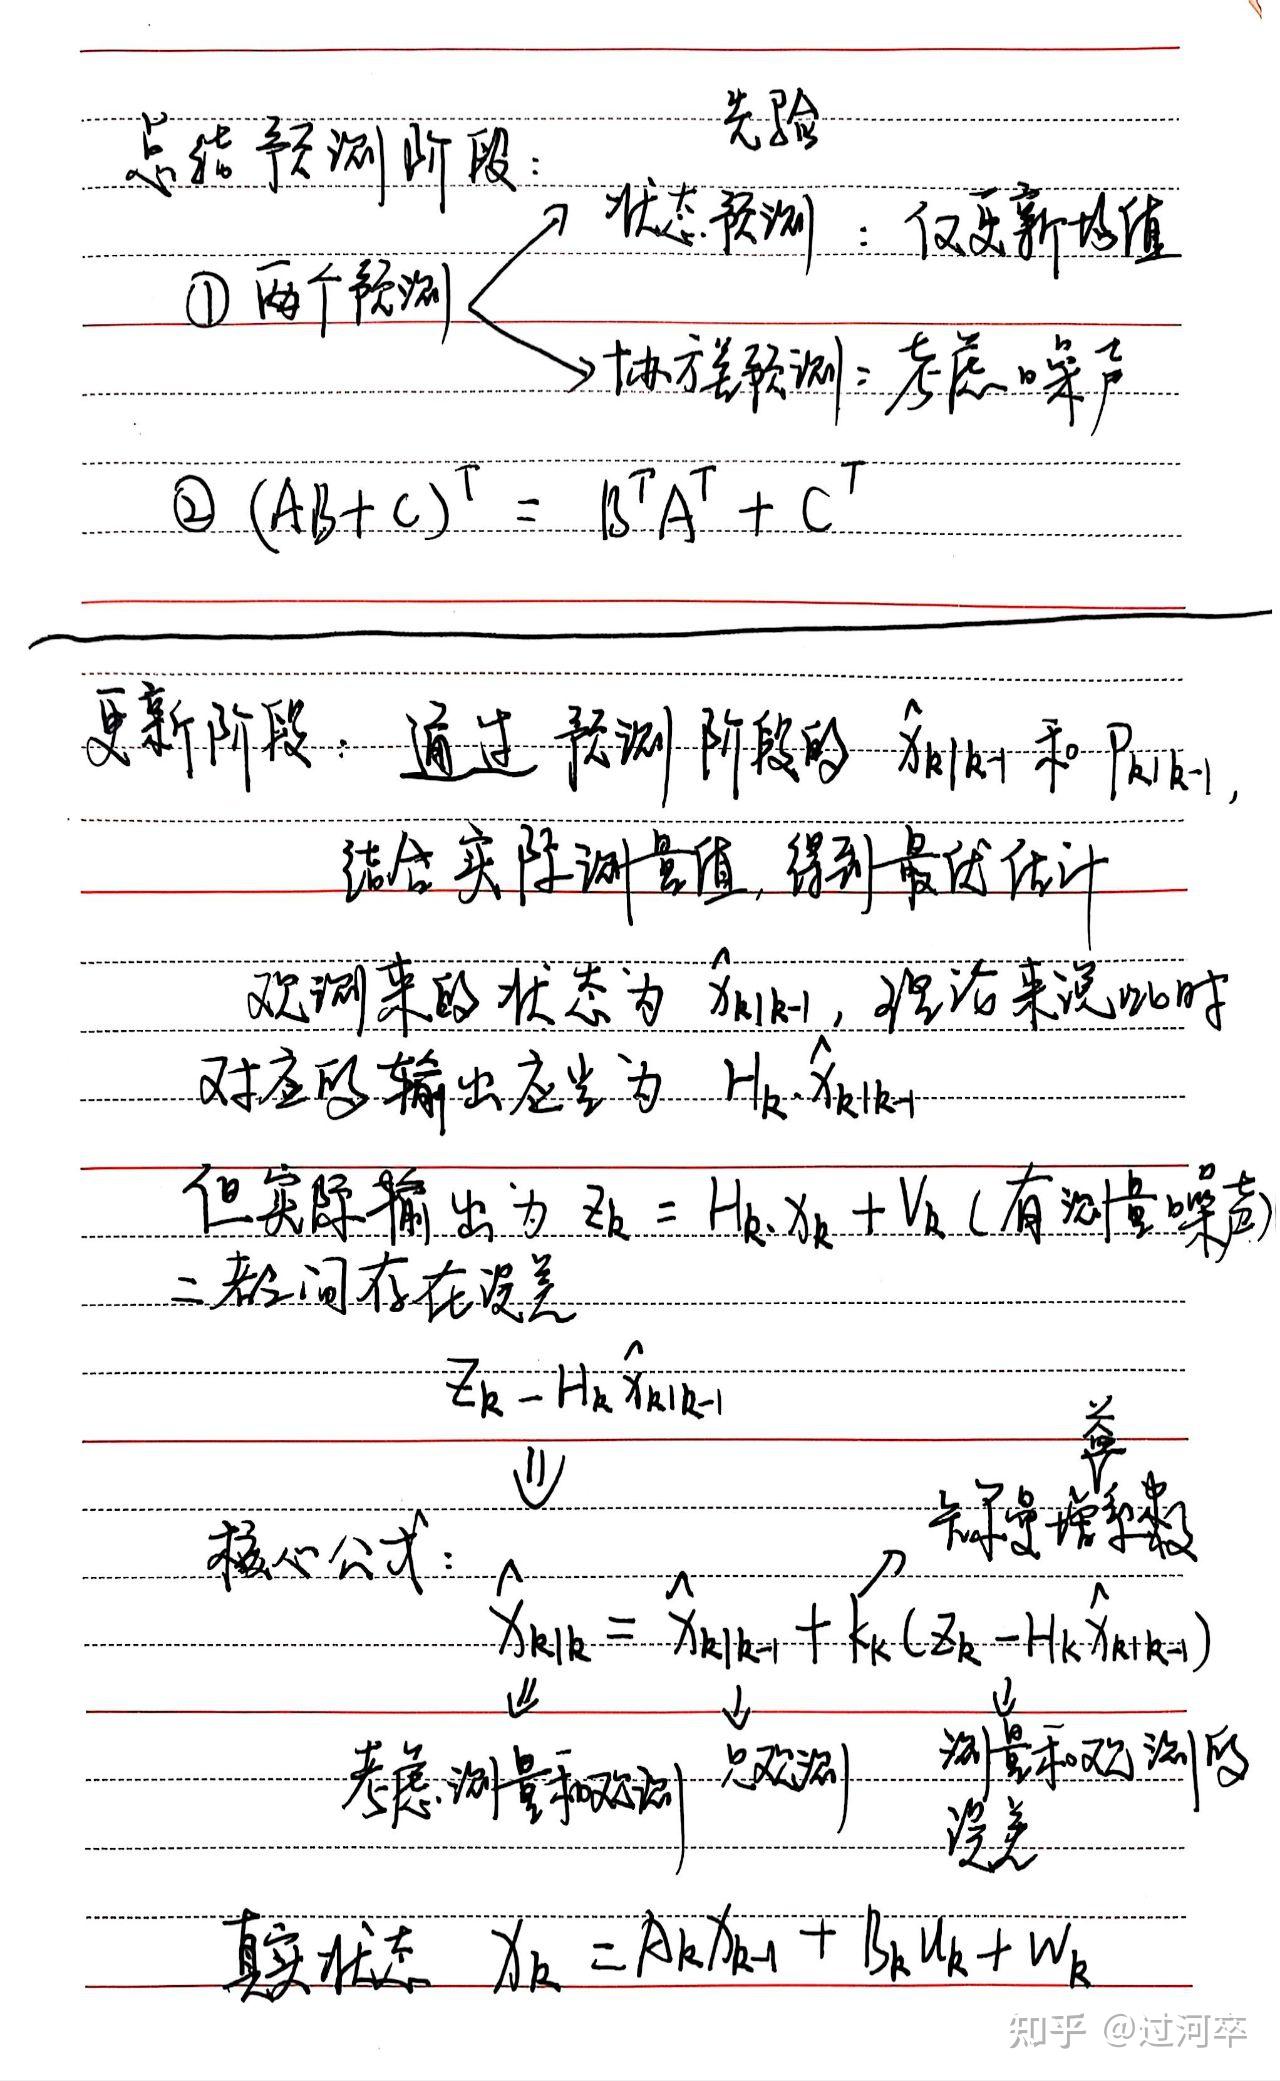 先验
总结预测阶段：
状态预测：仅更新均值
① 两个预测
协方差预测：考虑噪声
② (AB+C)ᵀ = BᵀAᵀ + Cᵀ
更新阶段：通过预测阶段的 x̂k|k-1 和 Pk|k-1,
结合实际测量值,得到最优估计
观测来的状态为 x̂k|k-1, 理论来说此时
对应的输出应当为 Hk·x̂k|k-1
但实际输出为 Zk = Hk·xk + Vk (有测量噪声)
二者之间存在误差
Zk - Hk x̂k|k-1
⇓
益
卡尔曼增系数
核心公式：
x̂k|k = x̂k|k-1 + kk (Zk - Hk x̂k|k-1)
考虑测量和观测 只观测 测量和观测的
误差
真实状态 xk = Ak xk-1 + Bk uk + Wk
知乎 @过河卒